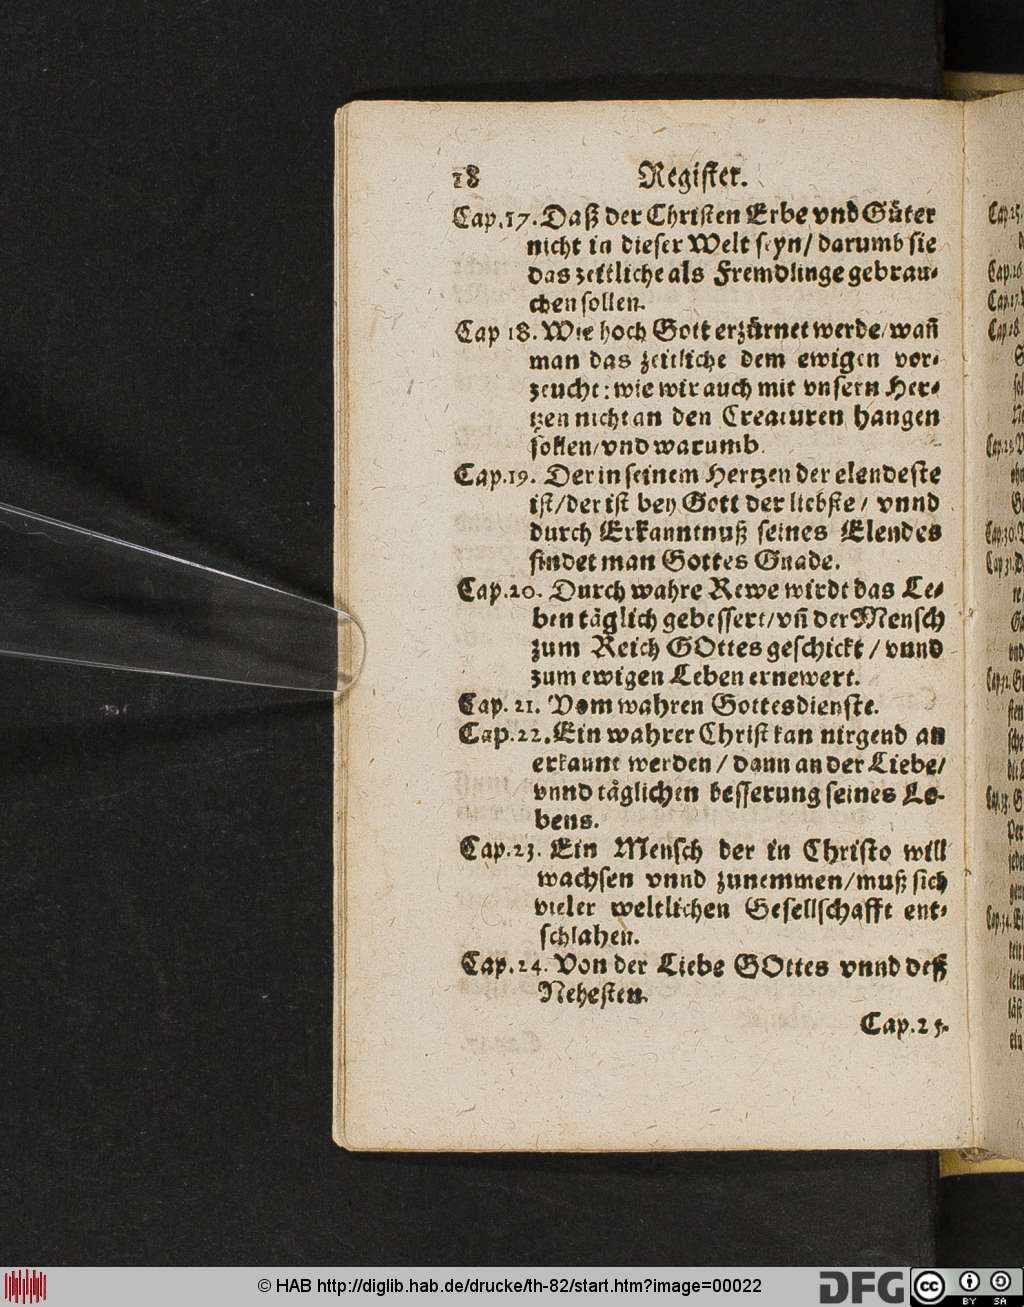 18 Register.
Cap.17. Daß der Christen Erbe vnd Güter
nicht in dieser Welt seyn/ darumb sie
das zeitliche als Fremdlinge gebrau-
chen sollen.
Cap 18. Wie hoch Gott erzürnet werde/ wañ
man das zeitliche dem ewigen vor-
zeucht: wie wir auch mit vnsern Her-
tzen nicht an den Creaturen hangen
sollen/ vnd warumb.
Cap.19. Der in seinem Hertzen der elendeste
ist/ der ist bey Gott der liebste/ vnnd
durch Erkanntnuß seines Elendes
findet man Gottes Gnade.
Cap.20. Durch wahre Rewe wirdt das Le-
ben täglich gebessert/ vñ der Mensch
zum Reich GOttes geschickt / vnnd
zum ewigen Leben ernewert.
Cap. 21. Vom wahren Gottesdienste.
Cap.22. Ein wahrer Christ kan nirgend an
erkannt werden / dann an der Liebe/
vnnd täglichen besserung seines Le-
bens.
Cap.23. Ein Mensch der in Christo will
wachsen vnnd zunemmen/ muß sich
vieler weltlichen Gesellschafft ent-
schlahen.
Cap.24. Von der Liebe GOttes vnnd deß
Nehesten.
Cap.25.
© HAB http://diglib.hab.de/drucke/th-82/start.htm?image=00022
DFG
cc BY SA